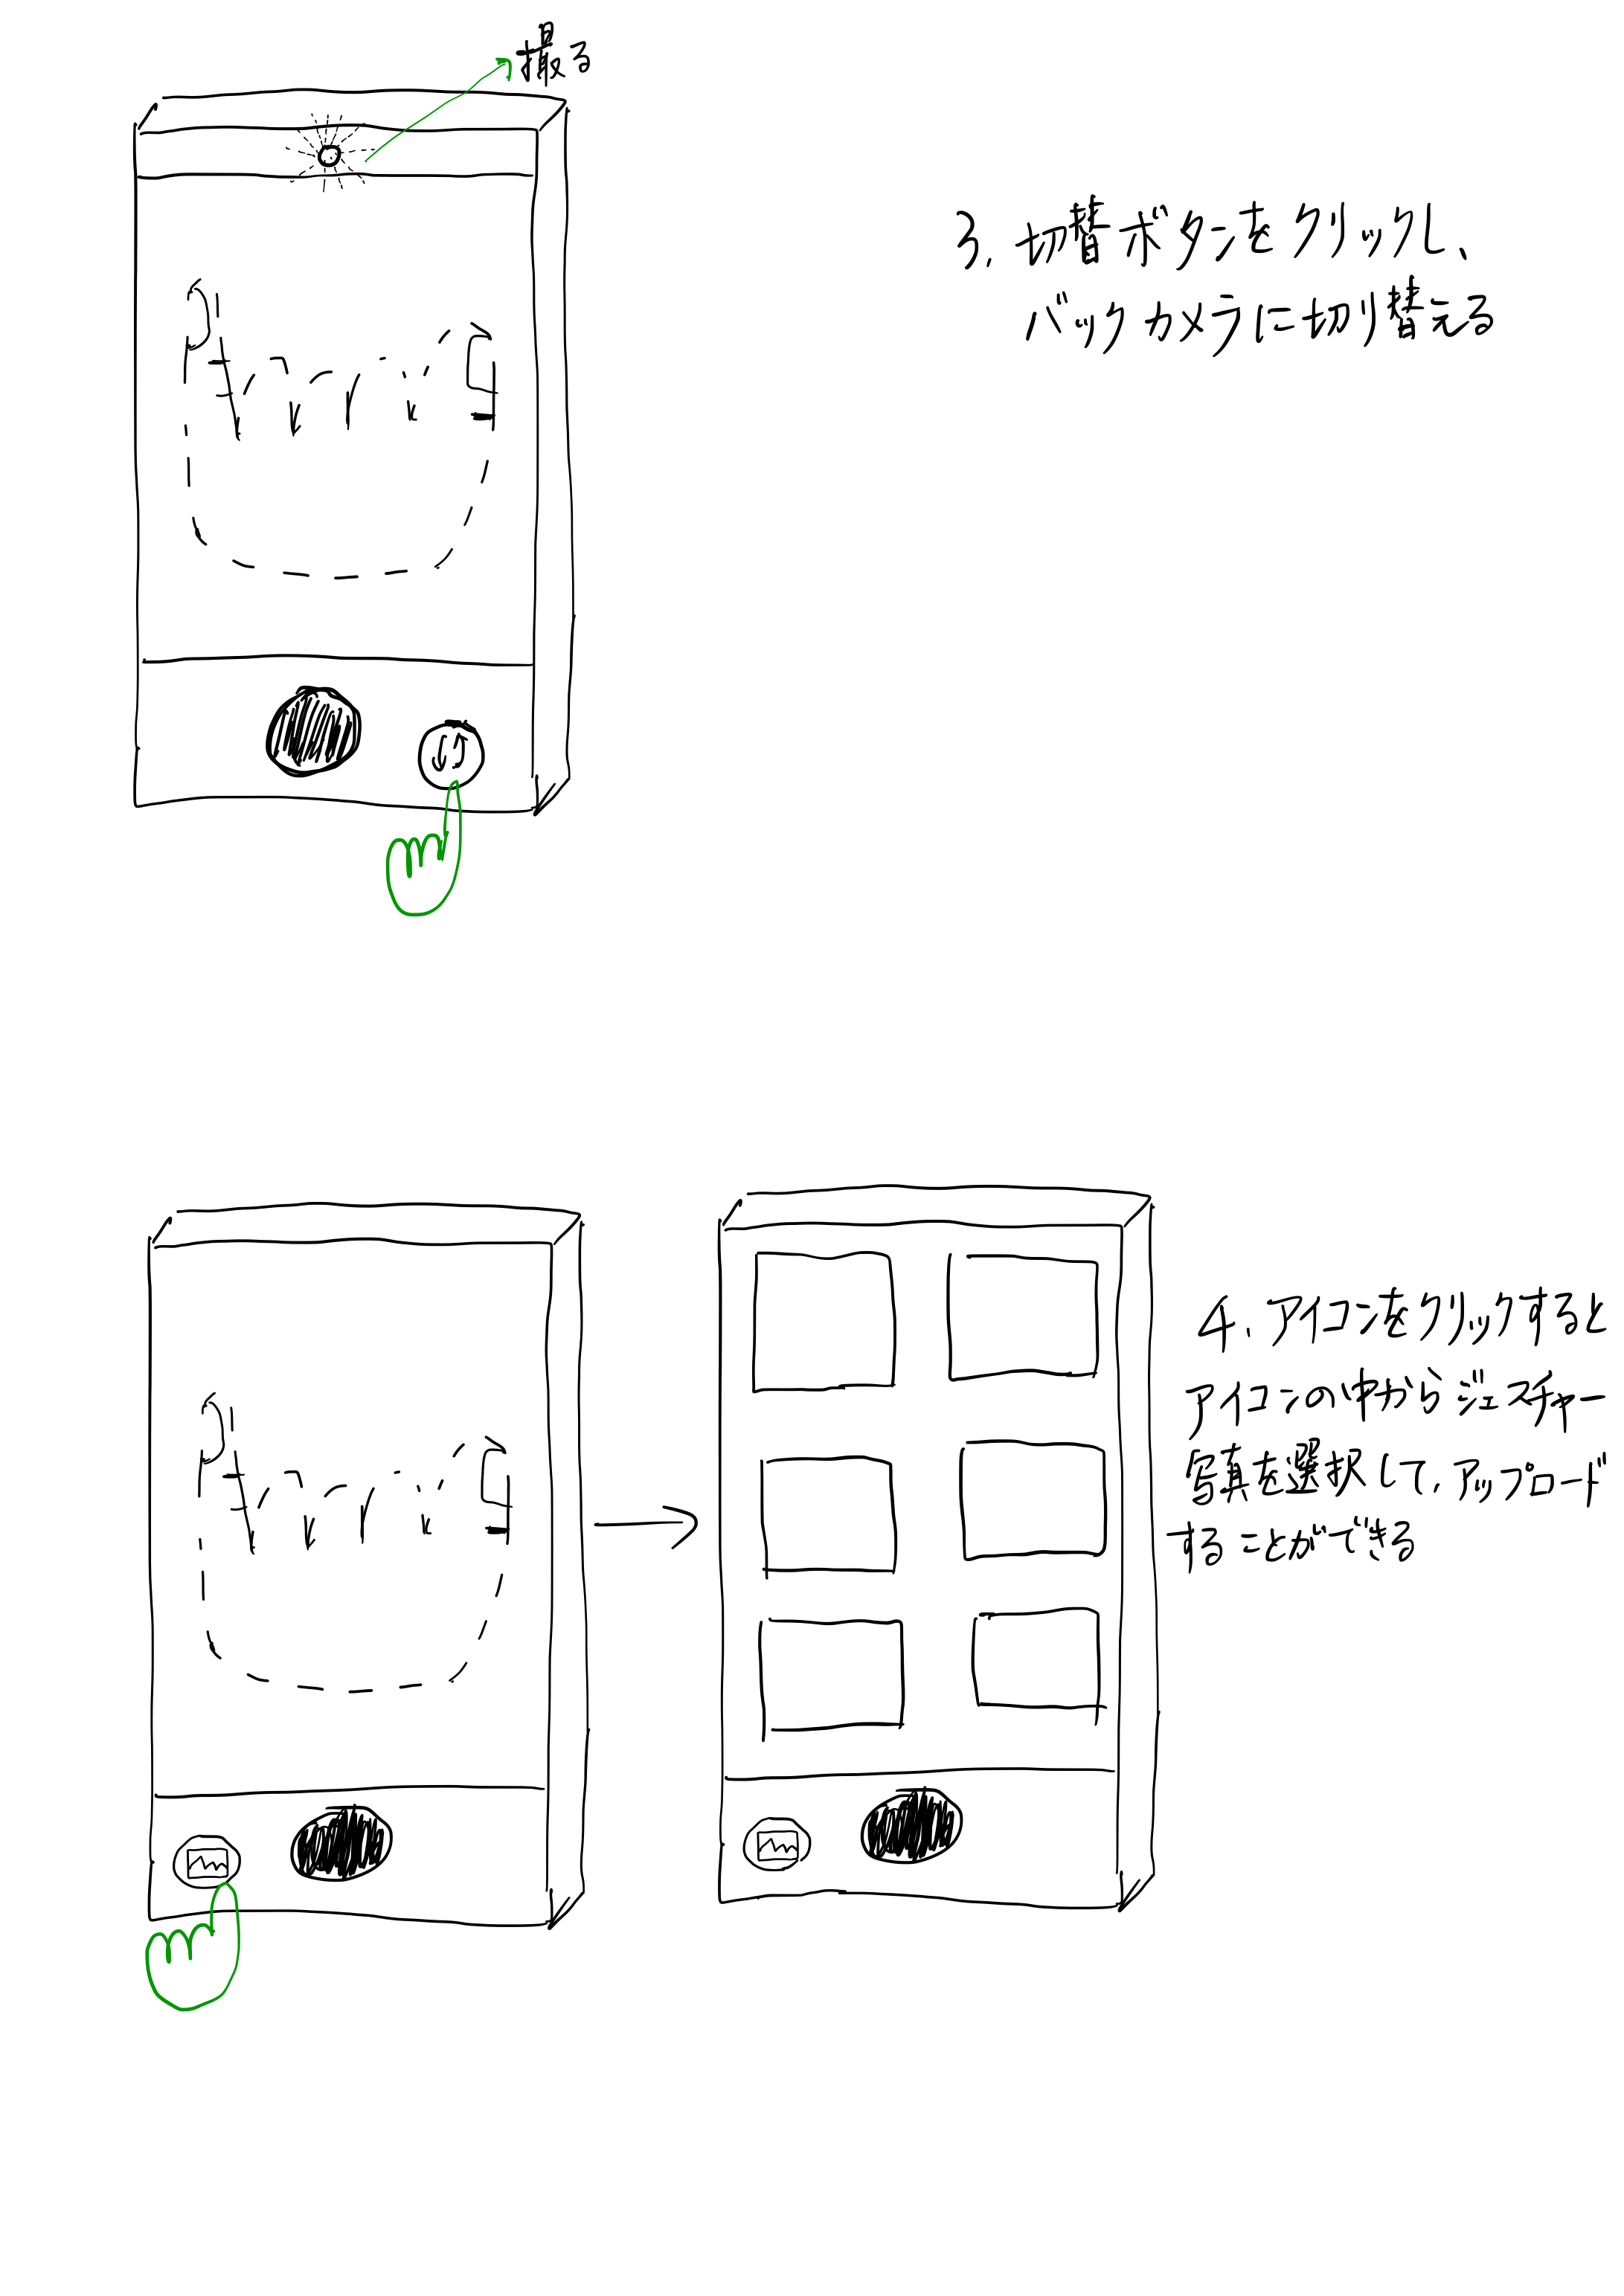 撮る
3. 切替ボタンをクリックし、
バックカメラに切り替える
4. アイコンをクリックすると
アイコンの中からジェスチャー
写真を選択して、アップロード
することができる